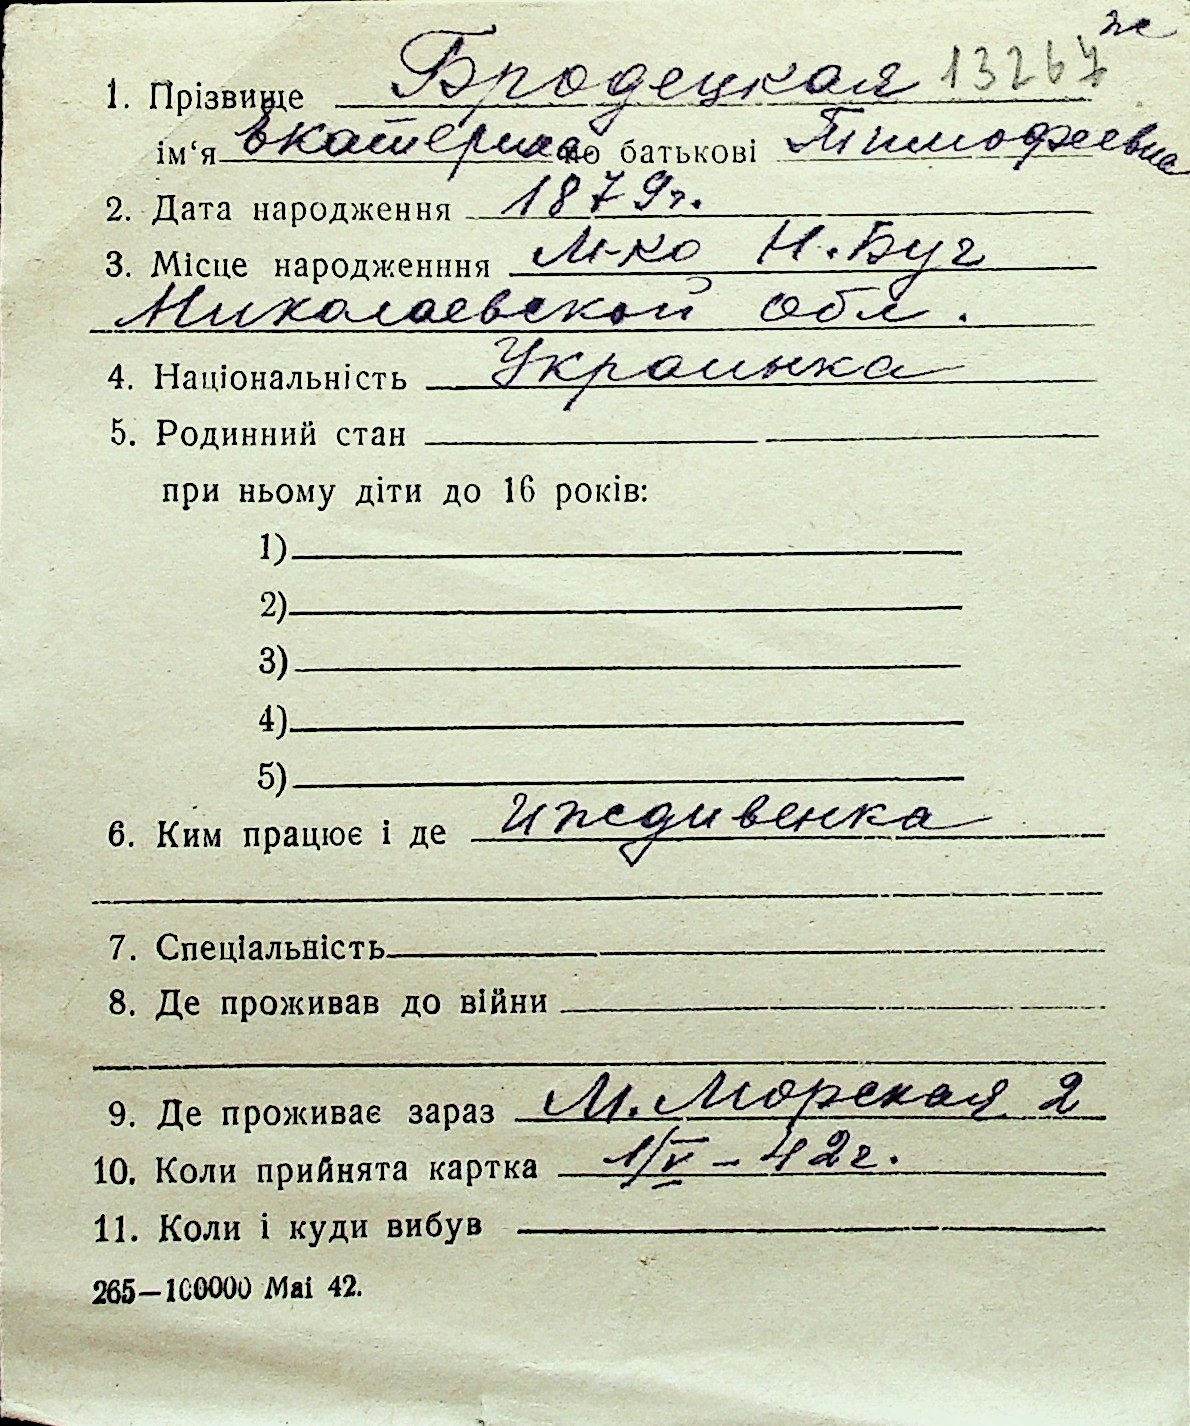 ж
1. Прізвище Бродецкая 13267
ім‘я Екатерина по батькові Тимофеевна
2. Дата народження 1879г.
3. Місце народженння м-ко Н.Буг
Николаевской обл.
4. Національність Украинка
5. Родинний стан
при ньому діти до 16 років:
1)
2)
3)
4)
5)
6. Ким працює і де иждивенка
7. Спеціальність
8. Де проживав до війни
9. Де проживає зараз М. Морская 2
10. Коли прийнята картка 1/V – 42г.
11. Коли і куди вибув
265—100000 Mai 42.